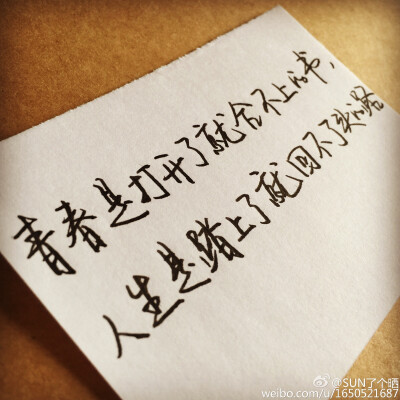 青春是打开了就合不上的书，
人生是踏上了就回不了头的路
@SUN了个晒
weibo.com/u/1650521687